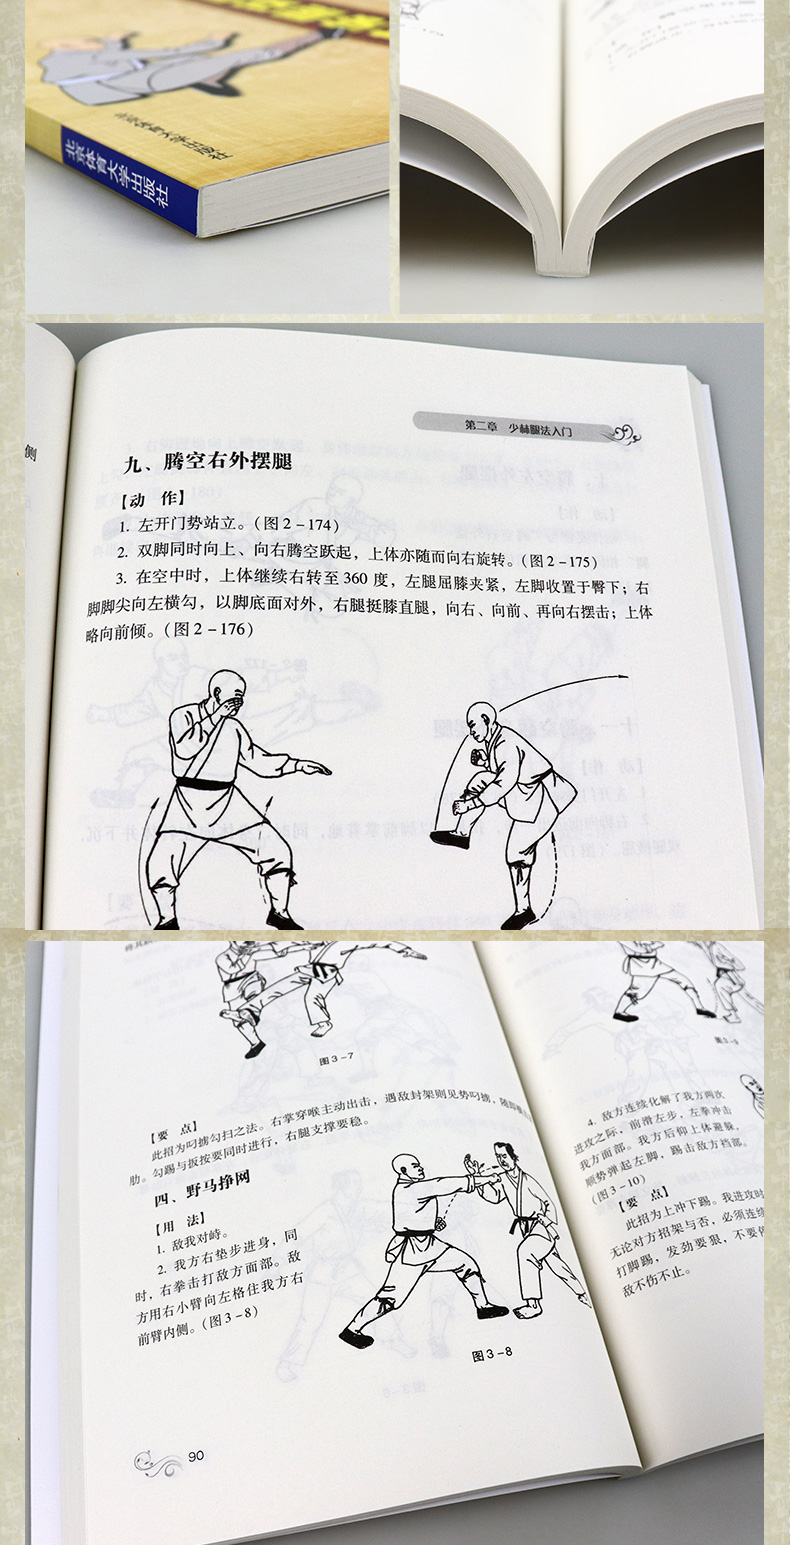 北京体育大学出版社
北京体育大学出版社
侧
第二章 少林腿法入门
九、腾空右外摆腿
【动 作】
1. 左开门势站立。(图2-174)
2. 双脚同时向上、向右腾空跃起，上体亦随而向右旋转。(图2-175)
3. 在空中时，上体继续右转至360度，左腿屈膝夹紧，左脚收置于臀下；右
脚脚尖向左横勾，以脚底面对外，右腿挺膝直腿，向右、向前、再向右摆击；上体
略向前倾。(图2-176)
图3-7
【要 点】
此招为叼掳勾扫之法。右掌穿喉主动出击，遇敌封架则见势叼掳，随即
肋。勾踢与扳按要同时进行，右腿支撑要稳。
四、野马挣网
【用 法】
1. 敌我对峙。
2. 我方右垫步进身，同
时，右拳击打敌方面部。敌
方用右小臂向左格住我方右
前臂内侧。(图3-8)
图3-8
90
图3-9
4. 敌方连续化解了我方两次
进攻之际，前滑左步，左拳冲击
我方面部。我方后仰上体避躲，
顺势弹起左脚，踢击敌方裆部。
(图3-10)
【要 点】
此招为上冲下踢。我进攻时
无论对方招架与否，必须连续
打脚踢，发劲要狠，不要停
敌不伤不止。